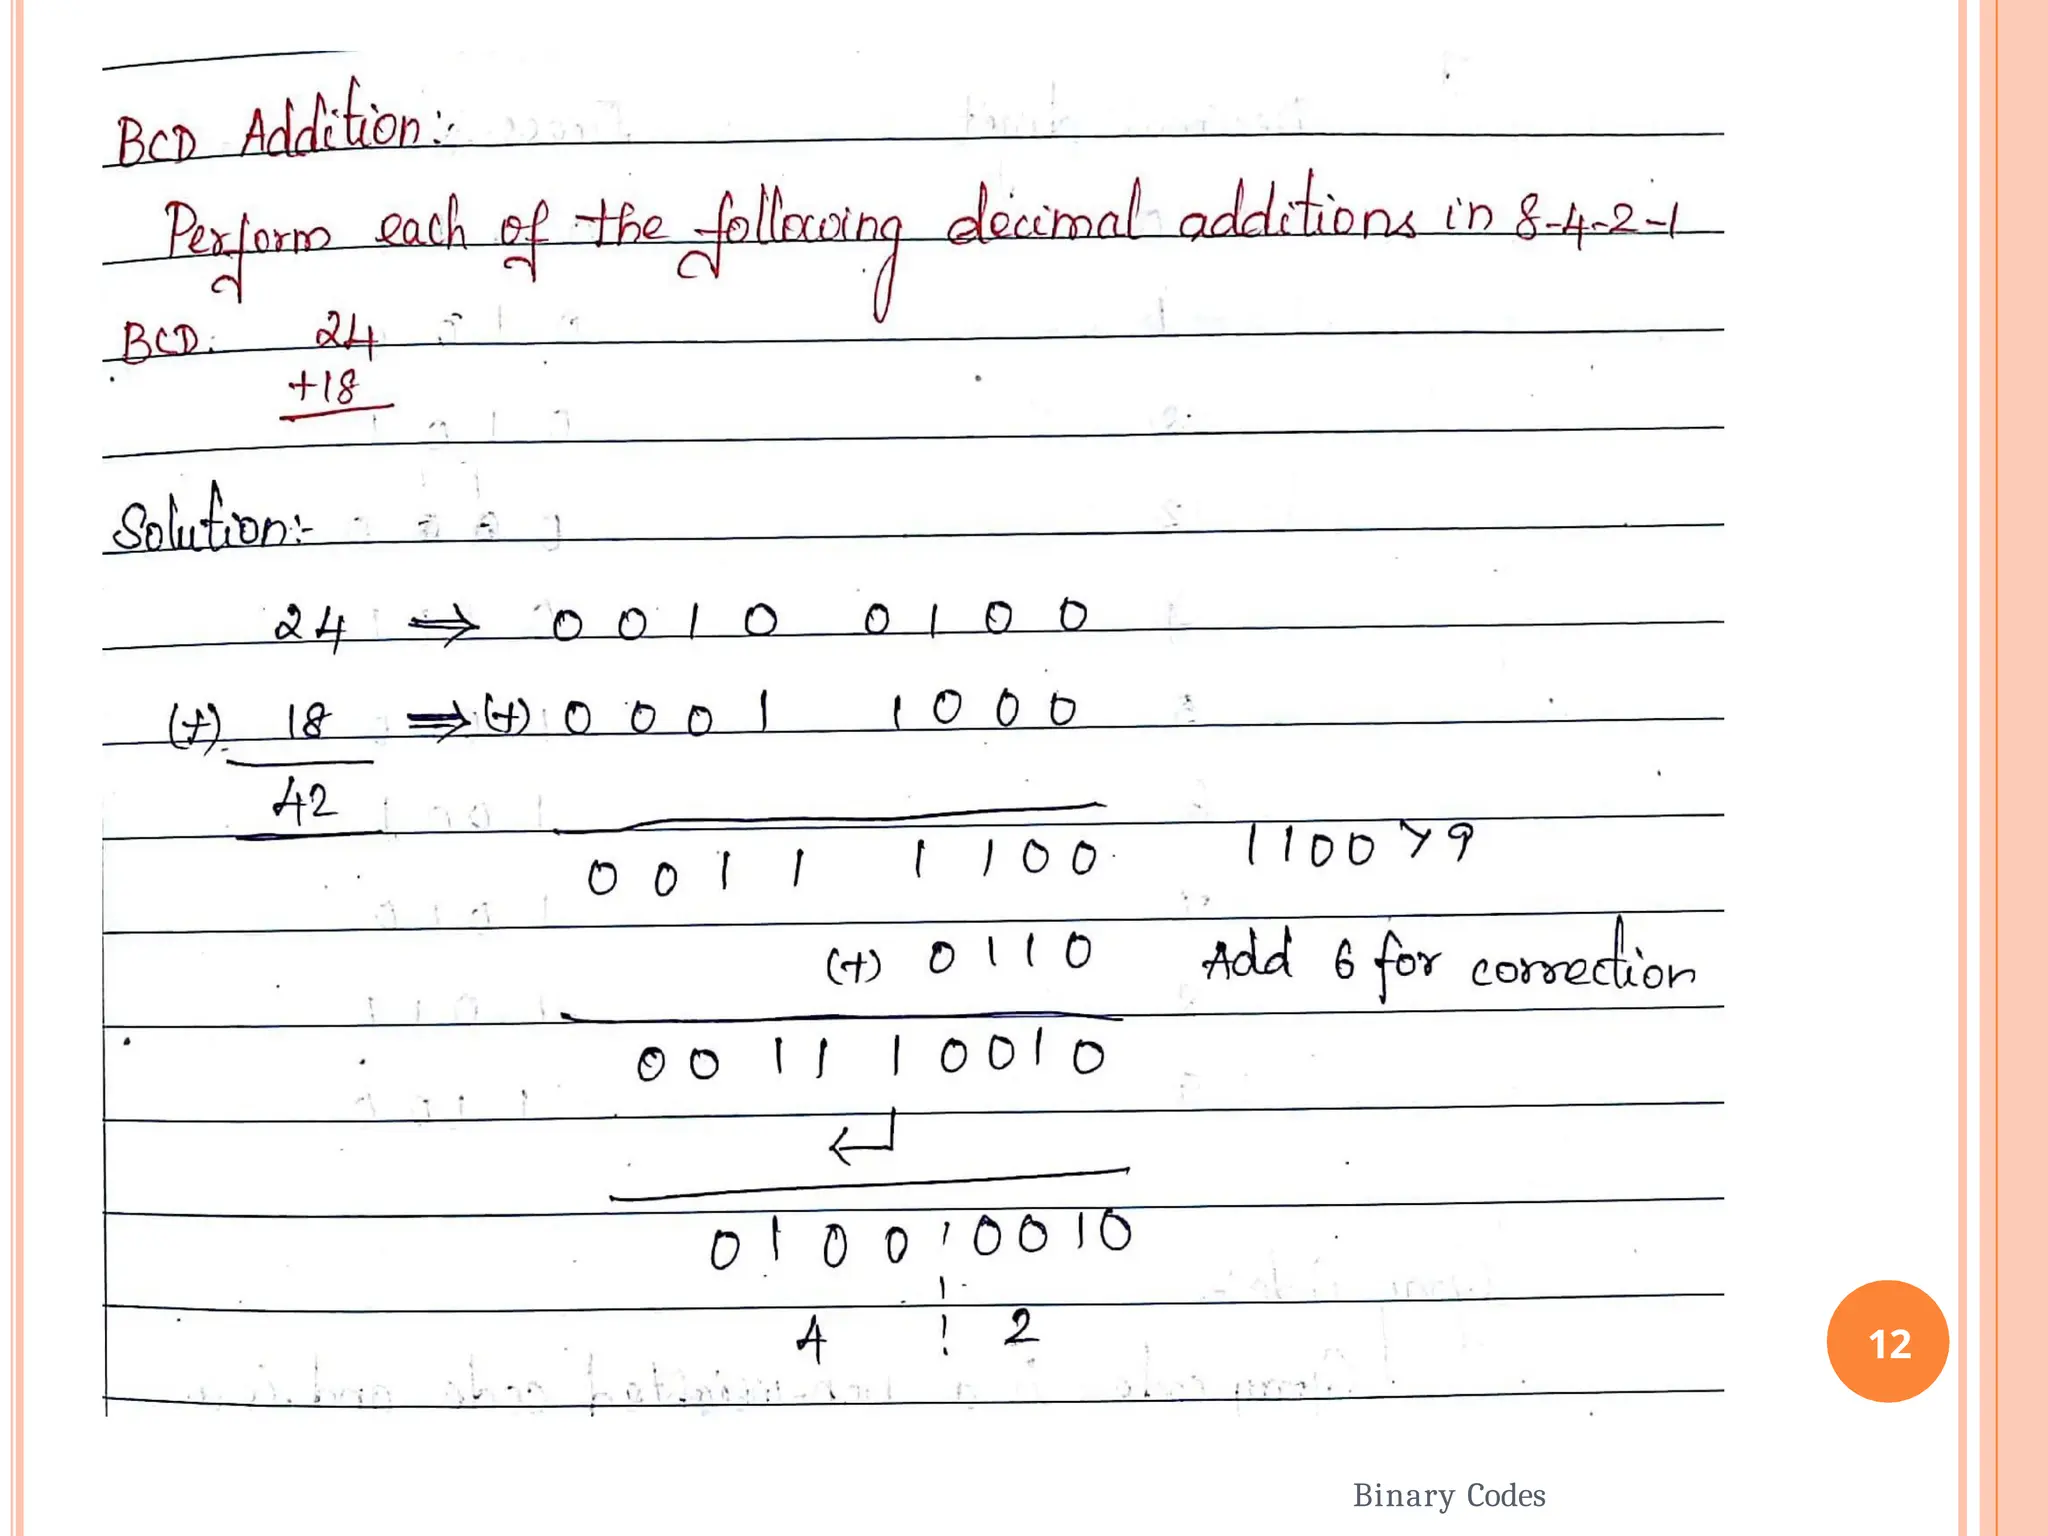 BCD Addition:-
Perform each of the following decimal additions in 8-4-2-1
BCD. 24
+18
Solution:-
24 ⇒ 0 0 1 0 0 1 0 0
(+) 18 ⇒ (+) 0 0 0 1 1 0 0 0
42
0 0 1 1 1 1 0 0 1100 > 9
(+) 0 1 1 0 Add 6 for correction
0 0 1 1 1 0 0 1 0
←
0 1 0 0 0 0 1 0
4 2
12
Binary Codes